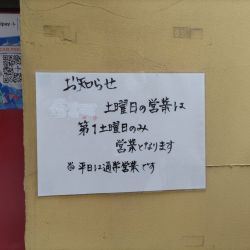 お知らせ
土曜日の営業は
第1土曜日のみ
営業となります
※平日は通常営業です